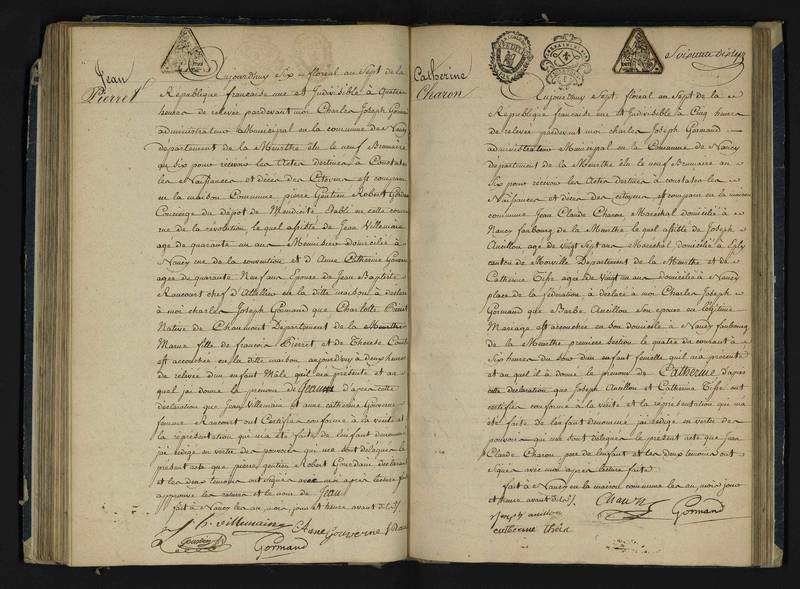 Jean
Pierret
Aujourdhuy Six floreal an Sept de la
République française une et Indivisible à Quatre
heures de relevée pardevant moi Charles Joseph Gormand
administrateur Municipal en la commune de Nancy
département de la Meurthe élu le neuf Brumaire
an Six pour recevoir les Actes destinés à Constater
les Naissances et décès des Citoyens est comparu
en la maison Commune pierre Gentien Robert
Concierge du dépot de Mendicité établi en cette commune
rue de la révolution, lequel assisté de Jean Villemain
age de quarante un ans Menuisier domicilié à
Nancy rue de la convention et d'Anne Catherine
agée de quarante Neuf ans Epouse de Jean Baptiste
Raucourt chef d'Attellier en la ditte maison à déclaré
à moi charles Joseph Gormand que Charlotte Pierret
Native de Chaumont Département de la
Marne fille de francois Pierret et de Therese
est accouchée en la ditte maison aujourdhuy à deux heures
de relevée d'un enfant Mâle quil ma présenté et au
quel jai donné le prénom de Jean d'apres cette
déclaration que Jean Villemain et anne catherine Gouverne
femme Raucourt ont Certifiée conforme à la vérité et
la réprésentation qui ma été faite de lenfant denommé
jai rédigé en vertu des pouvoirs qui me sont délégués le
présent acte que pierre gentien Robert déclarant
et les deux temoins ont Signés avec moi apres lecture
approuvé les ratures et le nom de Jean
fait à Nancy les an, mois, jour et heure avant dits
villemain Anne Gouverne
Gormand
Catherine
Charon
Aujourdhuy Sept floreal an Sept de la
République française une et Indivisible à Cinq heures
de relevée pardevant moi charles Joseph Gormand
administrateur Municipal en la Commune de Nancy
Département de la Meurthe élu le neuf Brumaire an
Six pour recevoir les Actes destinés à constater les
Naissances et décès des citoyens est comparu en la maison
commune Jean Claude Charon Maréchal domicilié à
Nancy faubourg de la Meurthe lequel assisté de Joseph
Aucillon agé de vingt Sept ans Maréchal domicilié à
canton de Département de la Meurthe et de
Catherine agée de Vingt un ans domiciliée à Nancy
place de la fédération à déclaré à moi Charles Joseph
Gormand que Barbe Aucillon Son epouse en légitime
Mariage est accouchée en son domicile à Nancy faubourg
de la Meurthe première section le quatre du courant à
Six heures du Soir d'un Enfant femelle quil ma présenté
et au quel il a donné le prénom de Catherine d'après
cette déclaration que Joseph Aucillon et Catherine ont
certifiée conforme à la vérité et la réprésentation qui ma
été faite de lenfant denommé jai rédigé en vertu des
pouvoirs qui me sont délégués le présent acte que Jean
Claude Charon pere de lenfant et les deux temoins ont
Signés avec moi apres lecture faite
fait à Nancy en la maison commune les an, mois jour
et heure avant dits
Gormand